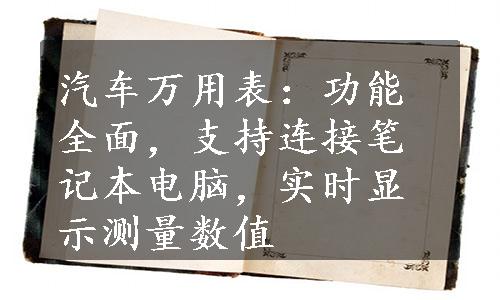 汽车万用表：功能
全面，支持连接笔
记本电脑，实时显
示测量数值